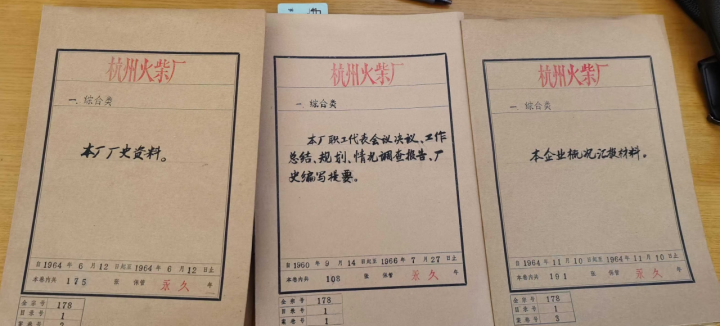 杭州火柴厂
一、综合类
本厂厂史资料。
自1964年6月12日起至1964年6月12日止
本卷内共175张 保管 永久 号
全宗号 178
目录号 1
案卷号 2
杭州火柴厂
一、综合类
本厂职工代表会议决议、工作
总结、规划、情况调查报告、厂
史编写提要。
自1960年9月14日起至1966年7月27日止
本卷内共108张 保管 永久 号
全宗号 178
目录号 1
案卷号 1
杭州火柴厂
一、综合类
本企业概况汇报材料。
自1964年11月10日起至1964年11月10日止
本卷内共191张 保管 永久 号
全宗号 178
目录号 1
案卷号 3